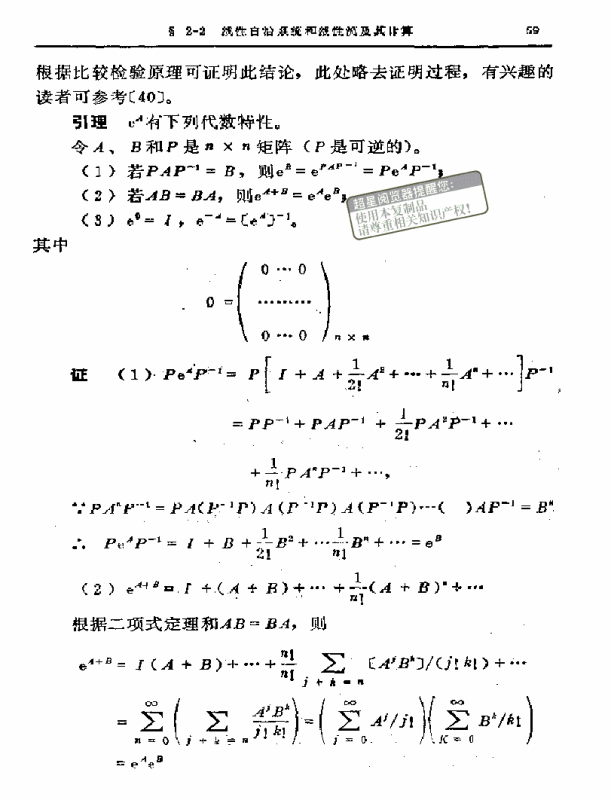 § 2-2 线性自治系统和线性流及其计算 59
根据比较检验原理可证明此结论,此处略去证明过程,有兴趣的
读者可参考〔40〕。
引理 e^A有下列代数特性。
令A、B和P是n×n矩阵(P是可逆的)。
(1)若PAP^{-1}=B,则e^B=e^{PAP^{-1}}=Pe^AP^{-1};
(2)若AB=BA,则e^{A+B}=e^Ae^B;
(3)e^0=I,e^{-A}=〔e^A〕^{-1}。
超星阅览器提醒您:
使用本复制品
请尊重相关知识产权!
其中
0 ⋯ 0
0 = ⋯⋯⋯
0 ⋯ 0 n×n
证 (1) Pe^AP^{-1}=P[I+A+\frac{1}{2!}A^2+⋯+\frac{1}{n!}A^n+⋯]P^{-1}
=PP^{-1}+PAP^{-1}+\frac{1}{2!}PA^2P^{-1}+⋯
+\frac{1}{n!}PA^nP^{-1}+⋯,
∵PA^nP^{-1}=PA(P^{-1}P)A(P^{-1}P)A(P^{-1}P)⋯( )AP^{-1}=B^n
∴ Pe^AP^{-1}=I+B+\frac{1}{2!}B^2+⋯\frac{1}{n!}B^n+⋯=e^B
(2)e^{A+B}=I+(A+B)+⋯+\frac{1}{n!}(A+B)^n+⋯
根据二项式定理和AB=BA,则
e^{A+B}=I(A+B)+⋯+\frac{n!}{n!}\sum_{j+k=n}〔A^jB^k〕/(j!k!)+⋯
=\sum_{n=0}^{∞}(\sum_{j+k=n}\frac{A^jB^k}{j!k!})=(\sum_{j=0}^{∞}A^j/j!)(\sum_{K=0}^{∞}B^k/k!)
=e^Ae^B